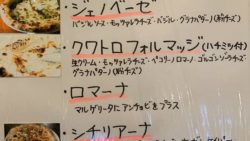 ・ジェノベーゼ
バジルソース・モッツァレラチーズ・バジル・グラナパダーノ(粉チーズ)
・クワトロフォルマッジ(ハチミツ付)
生クリーム・モッツァレラチーズ・ペコリーノロマーノ・ゴルゴンゾーラチーズ・
グラナパダーノ(粉チーズ)
・ロマーナ
マルゲリータにアンチョビをプラス
・シチリアーナ